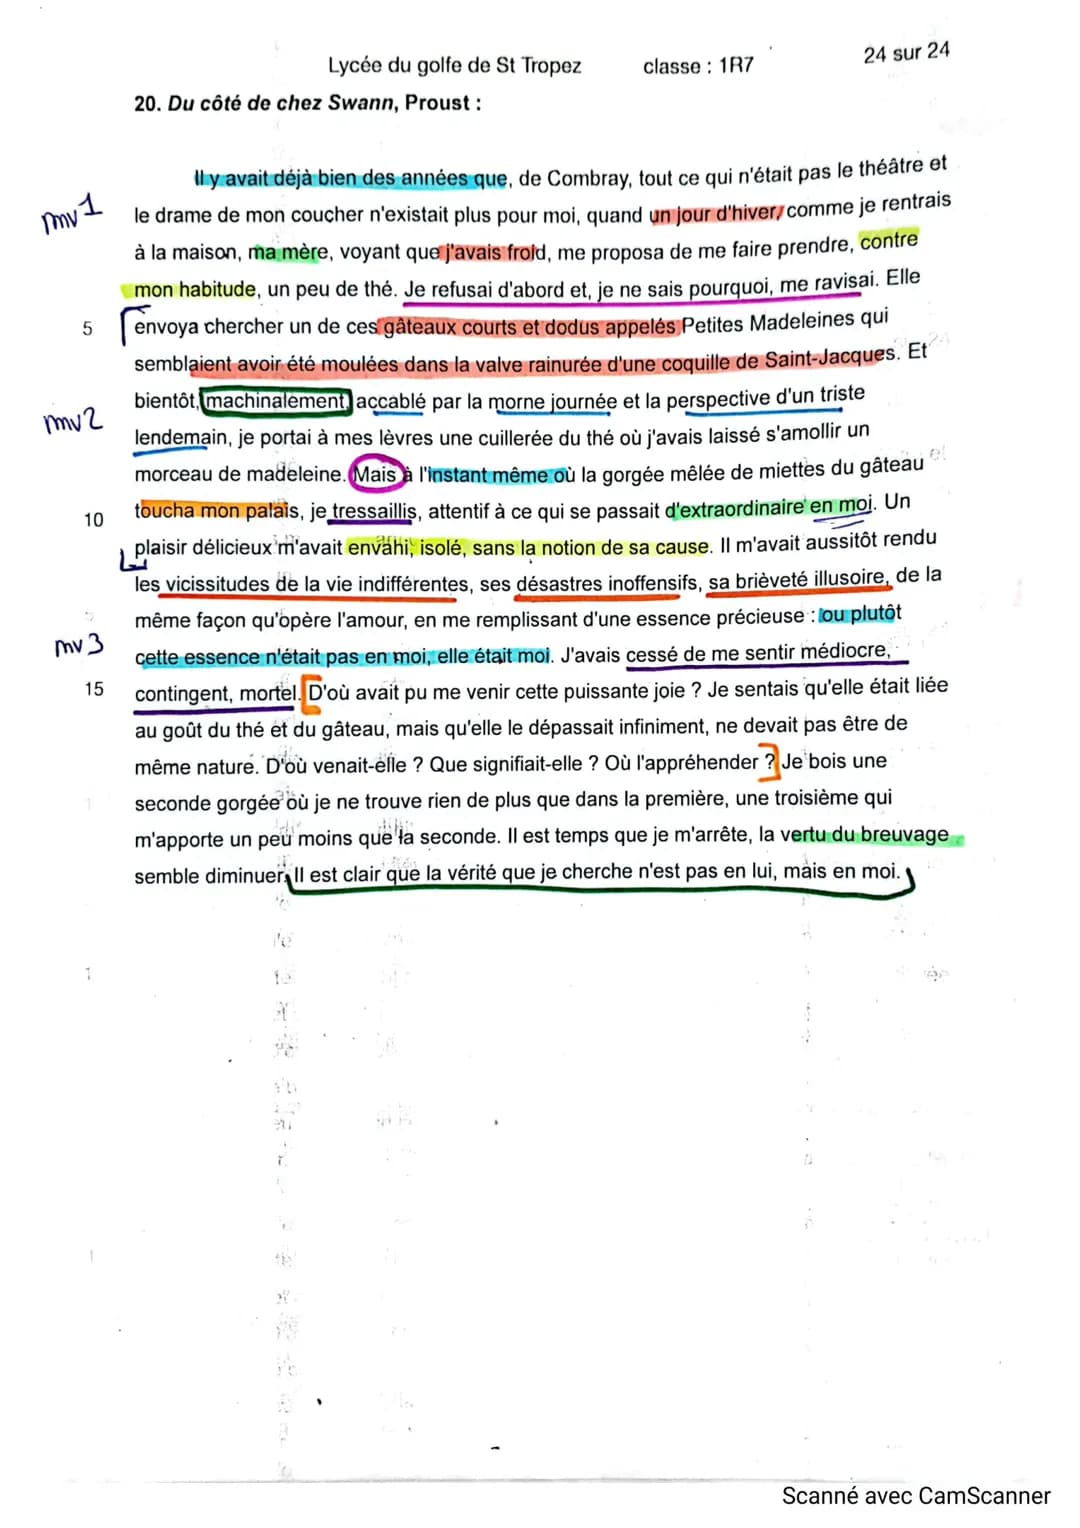 Lycée du golfe de St Tropez classe : 1R7 24 sur 24
20. Du côté de chez Swann, Proust :
Il y avait déjà bien des années que, de Combray, tout ce qui n'était pas le théâtre et
mv1 le drame de mon coucher n'existait plus pour moi, quand un jour d'hiver, comme je rentrais
à la maison, ma mère, voyant que j'avais froid, me proposa de me faire prendre, contre
mon habitude, un peu de thé. Je refusai d'abord et, je ne sais pourquoi, me ravisai. Elle
5 envoya chercher un de ces gâteaux courts et dodus appelés Petites Madeleines qui
semblaient avoir été moulées dans la valve rainurée d'une coquille de Saint-Jacques. Et
mv2 bientôt, machinalement, accablé par la morne journée et la perspective d'un triste
lendemain, je portai à mes lèvres une cuillerée du thé où j'avais laissé s'amollir un
morceau de madeleine. Mais à l'instant même où la gorgée mêlée de miettes du gâteau
10 toucha mon palais, je tressaillis, attentif à ce qui se passait d'extraordinaire en moi. Un
plaisir délicieux m'avait envahi, isolé, sans la notion de sa cause. Il m'avait aussitôt rendu
les vicissitudes de la vie indifférentes, ses désastres inoffensifs, sa brièveté illusoire, de la
même façon qu'opère l'amour, en me remplissant d'une essence précieuse : ou plutôt
mv3 cette essence n'était pas en moi, elle était moi. J'avais cessé de me sentir médiocre,
15 contingent, mortel. D'où avait pu me venir cette puissante joie ? Je sentais qu'elle était liée
au goût du thé et du gâteau, mais qu'elle le dépassait infiniment, ne devait pas être de
même nature. D'où venait-elle ? Que signifiait-elle ? Où l'appréhender ? Je bois une
seconde gorgée où je ne trouve rien de plus que dans la première, une troisième qui
m'apporte un peu moins que la seconde. Il est temps que je m'arrête, la vertu du breuvage
semble diminuer. Il est clair que la vérité que je cherche n'est pas en lui, mais en moi.
Scanné avec CamScanner